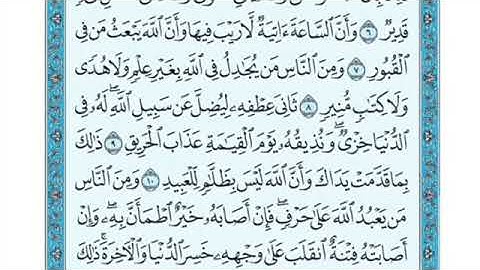 قَدِيرٌ ٦ وَأَنَّ ٱلسَّاعَةَ ءَاتِيَةٌ لَّا رَيْبَ فِيهَا وَأَنَّ ٱللَّهَ يَبْعَثُ مَن فِى
ٱلْقُبُورِ ٧ وَمِنَ ٱلنَّاسِ مَن يُجَٰدِلُ فِى ٱللَّهِ بِغَيْرِ عِلْمٍ وَلَا هُدًى
وَلَا كِتَٰبٍ مُّنِيرٍ ٨ ثَانِىَ عِطْفِهِۦ لِيُضِلَّ عَن سَبِيلِ ٱللَّهِ ۖ لَهُۥ فِى
ٱلدُّنْيَا خِزْىٌ ۖ وَنُذِيقُهُۥ يَوْمَ ٱلْقِيَٰمَةِ عَذَابَ ٱلْحَرِيقِ ٩ ذَٰلِكَ
بِمَا قَدَّمَتْ يَدَاكَ وَأَنَّ ٱللَّهَ لَيْسَ بِظَلَّٰمٍ لِّلْعَبِيدِ ١٠ وَمِنَ ٱلنَّاسِ
مَن يَعْبُدُ ٱللَّهَ عَلَىٰ حَرْفٍ ۖ فَإِنْ أَصَابَهُۥ خَيْرٌ ٱطْمَأَنَّ بِهِۦ ۖ وَإِنْ
أَصَابَتْهُ فِتْنَةٌ ٱنقَلَبَ عَلَىٰ وَجْهِهِۦ خَسِرَ ٱلدُّنْيَا وَٱلْءَاخِرَةَ ۚ ذَٰلِكَ